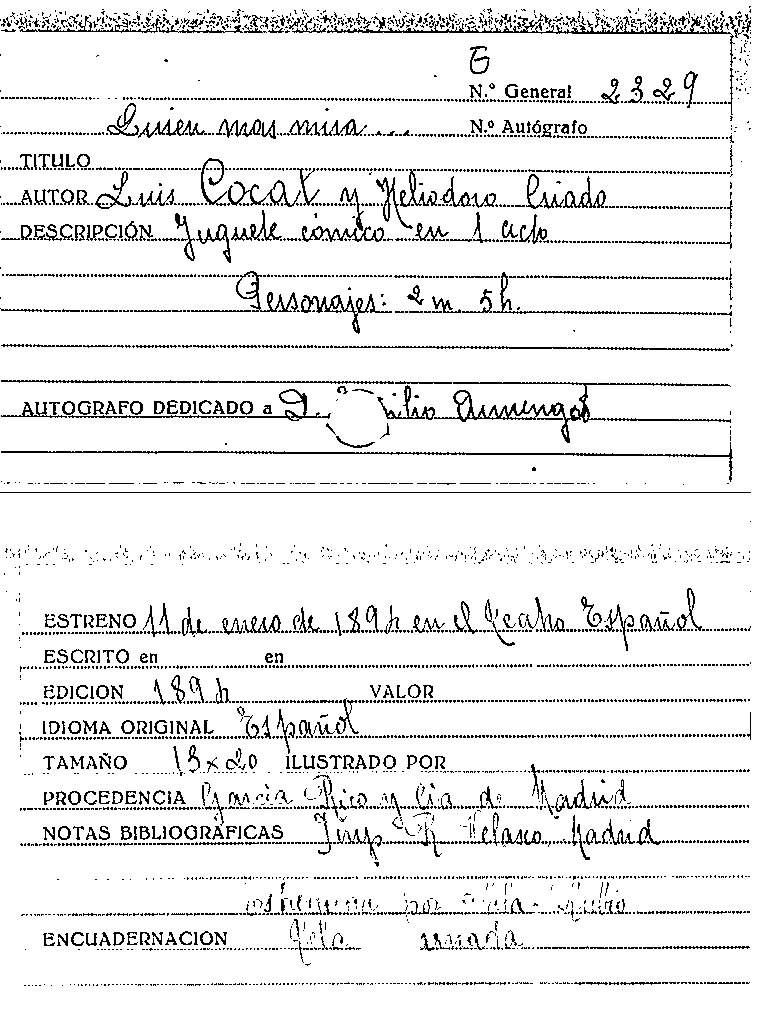 E
N.º General 2329
Quien mas mira... N.º Autógrafo
TITULO
AUTOR Luis Cocat y Heliodoro Criado
DESCRIPCIÓN Juguete cómico en 1 acto
Personajes: 2 m. 5 h.
AUTOGRAFO DEDICADO a D. ilio Armengod
ESTRENO 11 de enero de 189 en el Teatro Español
ESCRITO en en
EDICION 189 VALOR
IDIOMA ORIGINAL Español
TAMAÑO 13x20 ILUSTRADO POR
PROCEDENCIA García Rico y Cia de Madrid
NOTAS BIBLIOGRÁFICAS Imp R Velasco, Madrid
por Rubio
ENCUADERNACION Tela usada